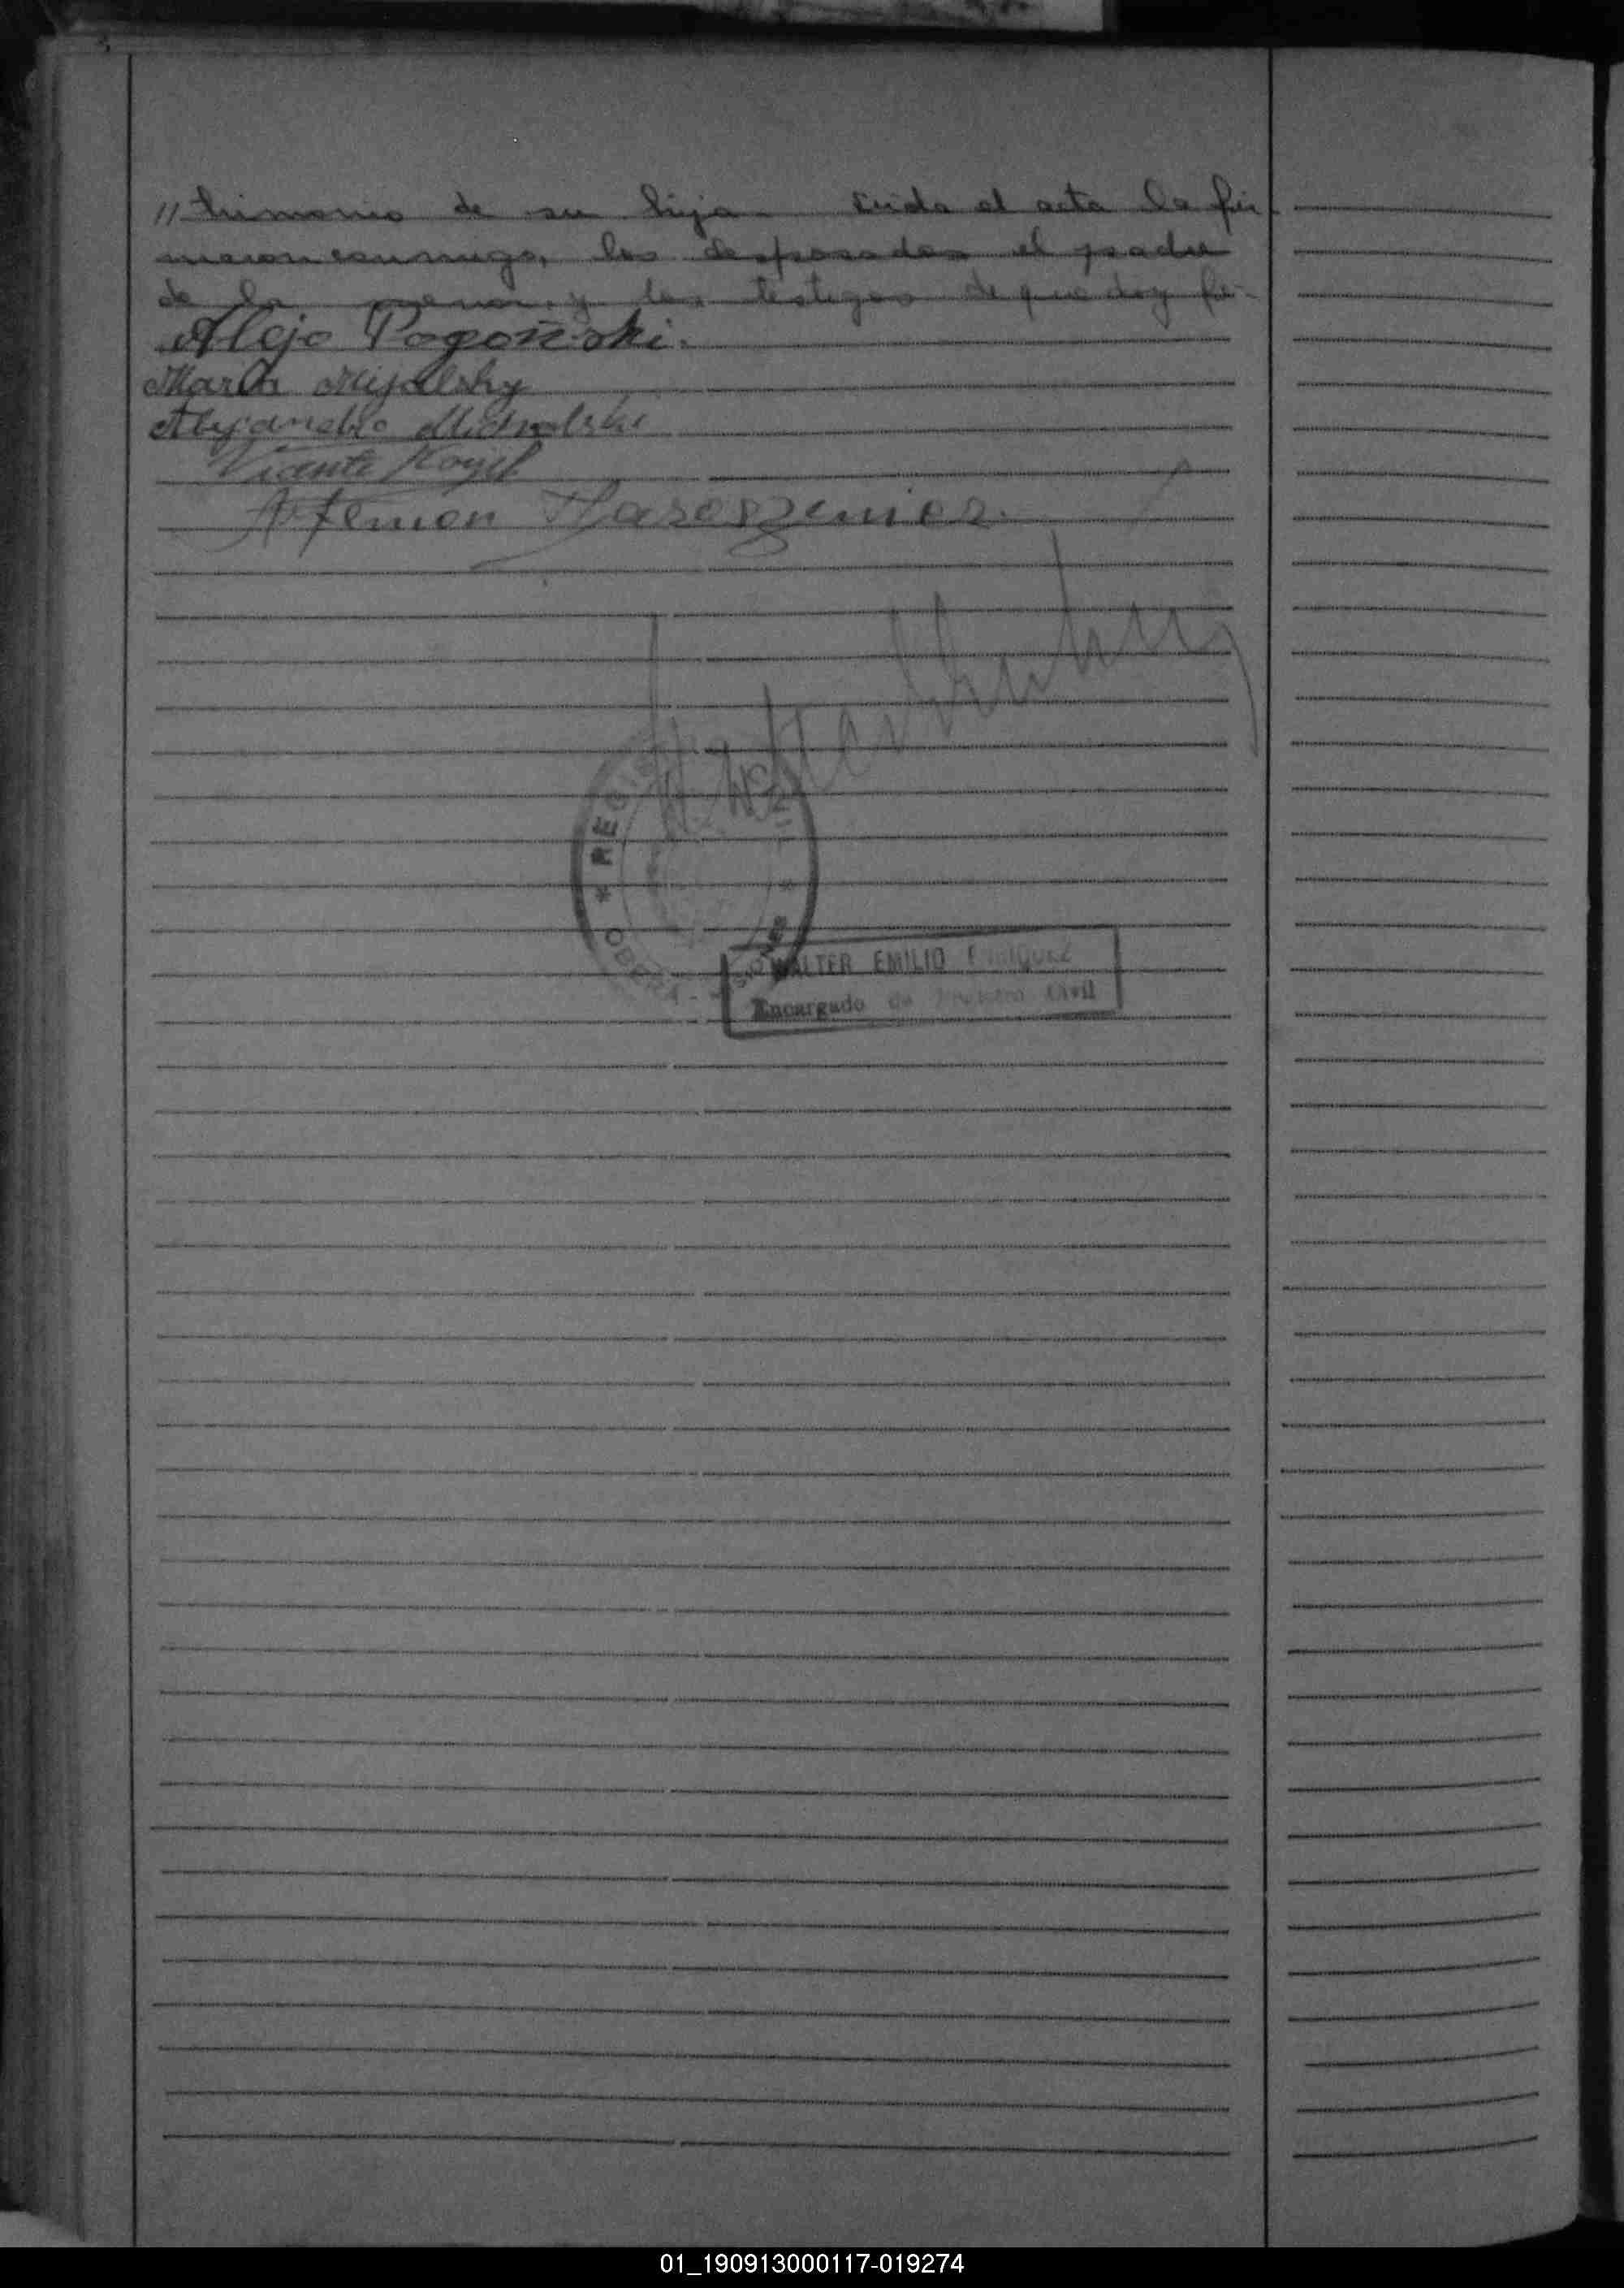 // trimonio de su hija - Leida el acta la fir
maron conmigo, los desposados el padre
de la menor y los testigos de que doy fé-
Alejo Pogoñski.
Marta Mijalsky
Alejandro Michalski
Vicente
Artemon Haroszeniez.
* REGIS
OBERA - MISIONES *
WALTER EMILIO
Encargado de Registro Civil
01_190913000117-019274